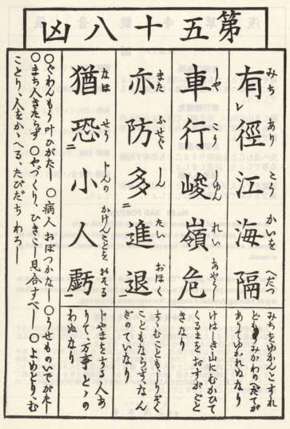 第五十八凶
有レ徑江海隔
みち あり こう かいを へだつ
みちをゆかんとすれ
どもうみかわのへだてが
ありてゆかれぬなり
車行峻嶺危
しや こう しゆん れい あやうし
けはしき山にむかひて
くるまをおすがごと
きなり
亦防二多進退一
また ふせぐ しん たい おほく
すゝむこともしりぞく
こともならず、なん
ぎのていなり
猶恐二小人虧一
なほ せう じんの かけんことを おそる
じやまをする人あ
りて、万事とゝの
わぬなり
○ぐわんもう叶ひがたし ○病人おぼつかなし ○うせものいでがたし
○まち人きたらず ○やづくり、ひきこし見合すべし ○よめとり、む
ことり、人をかゝへる、たびだちわろし